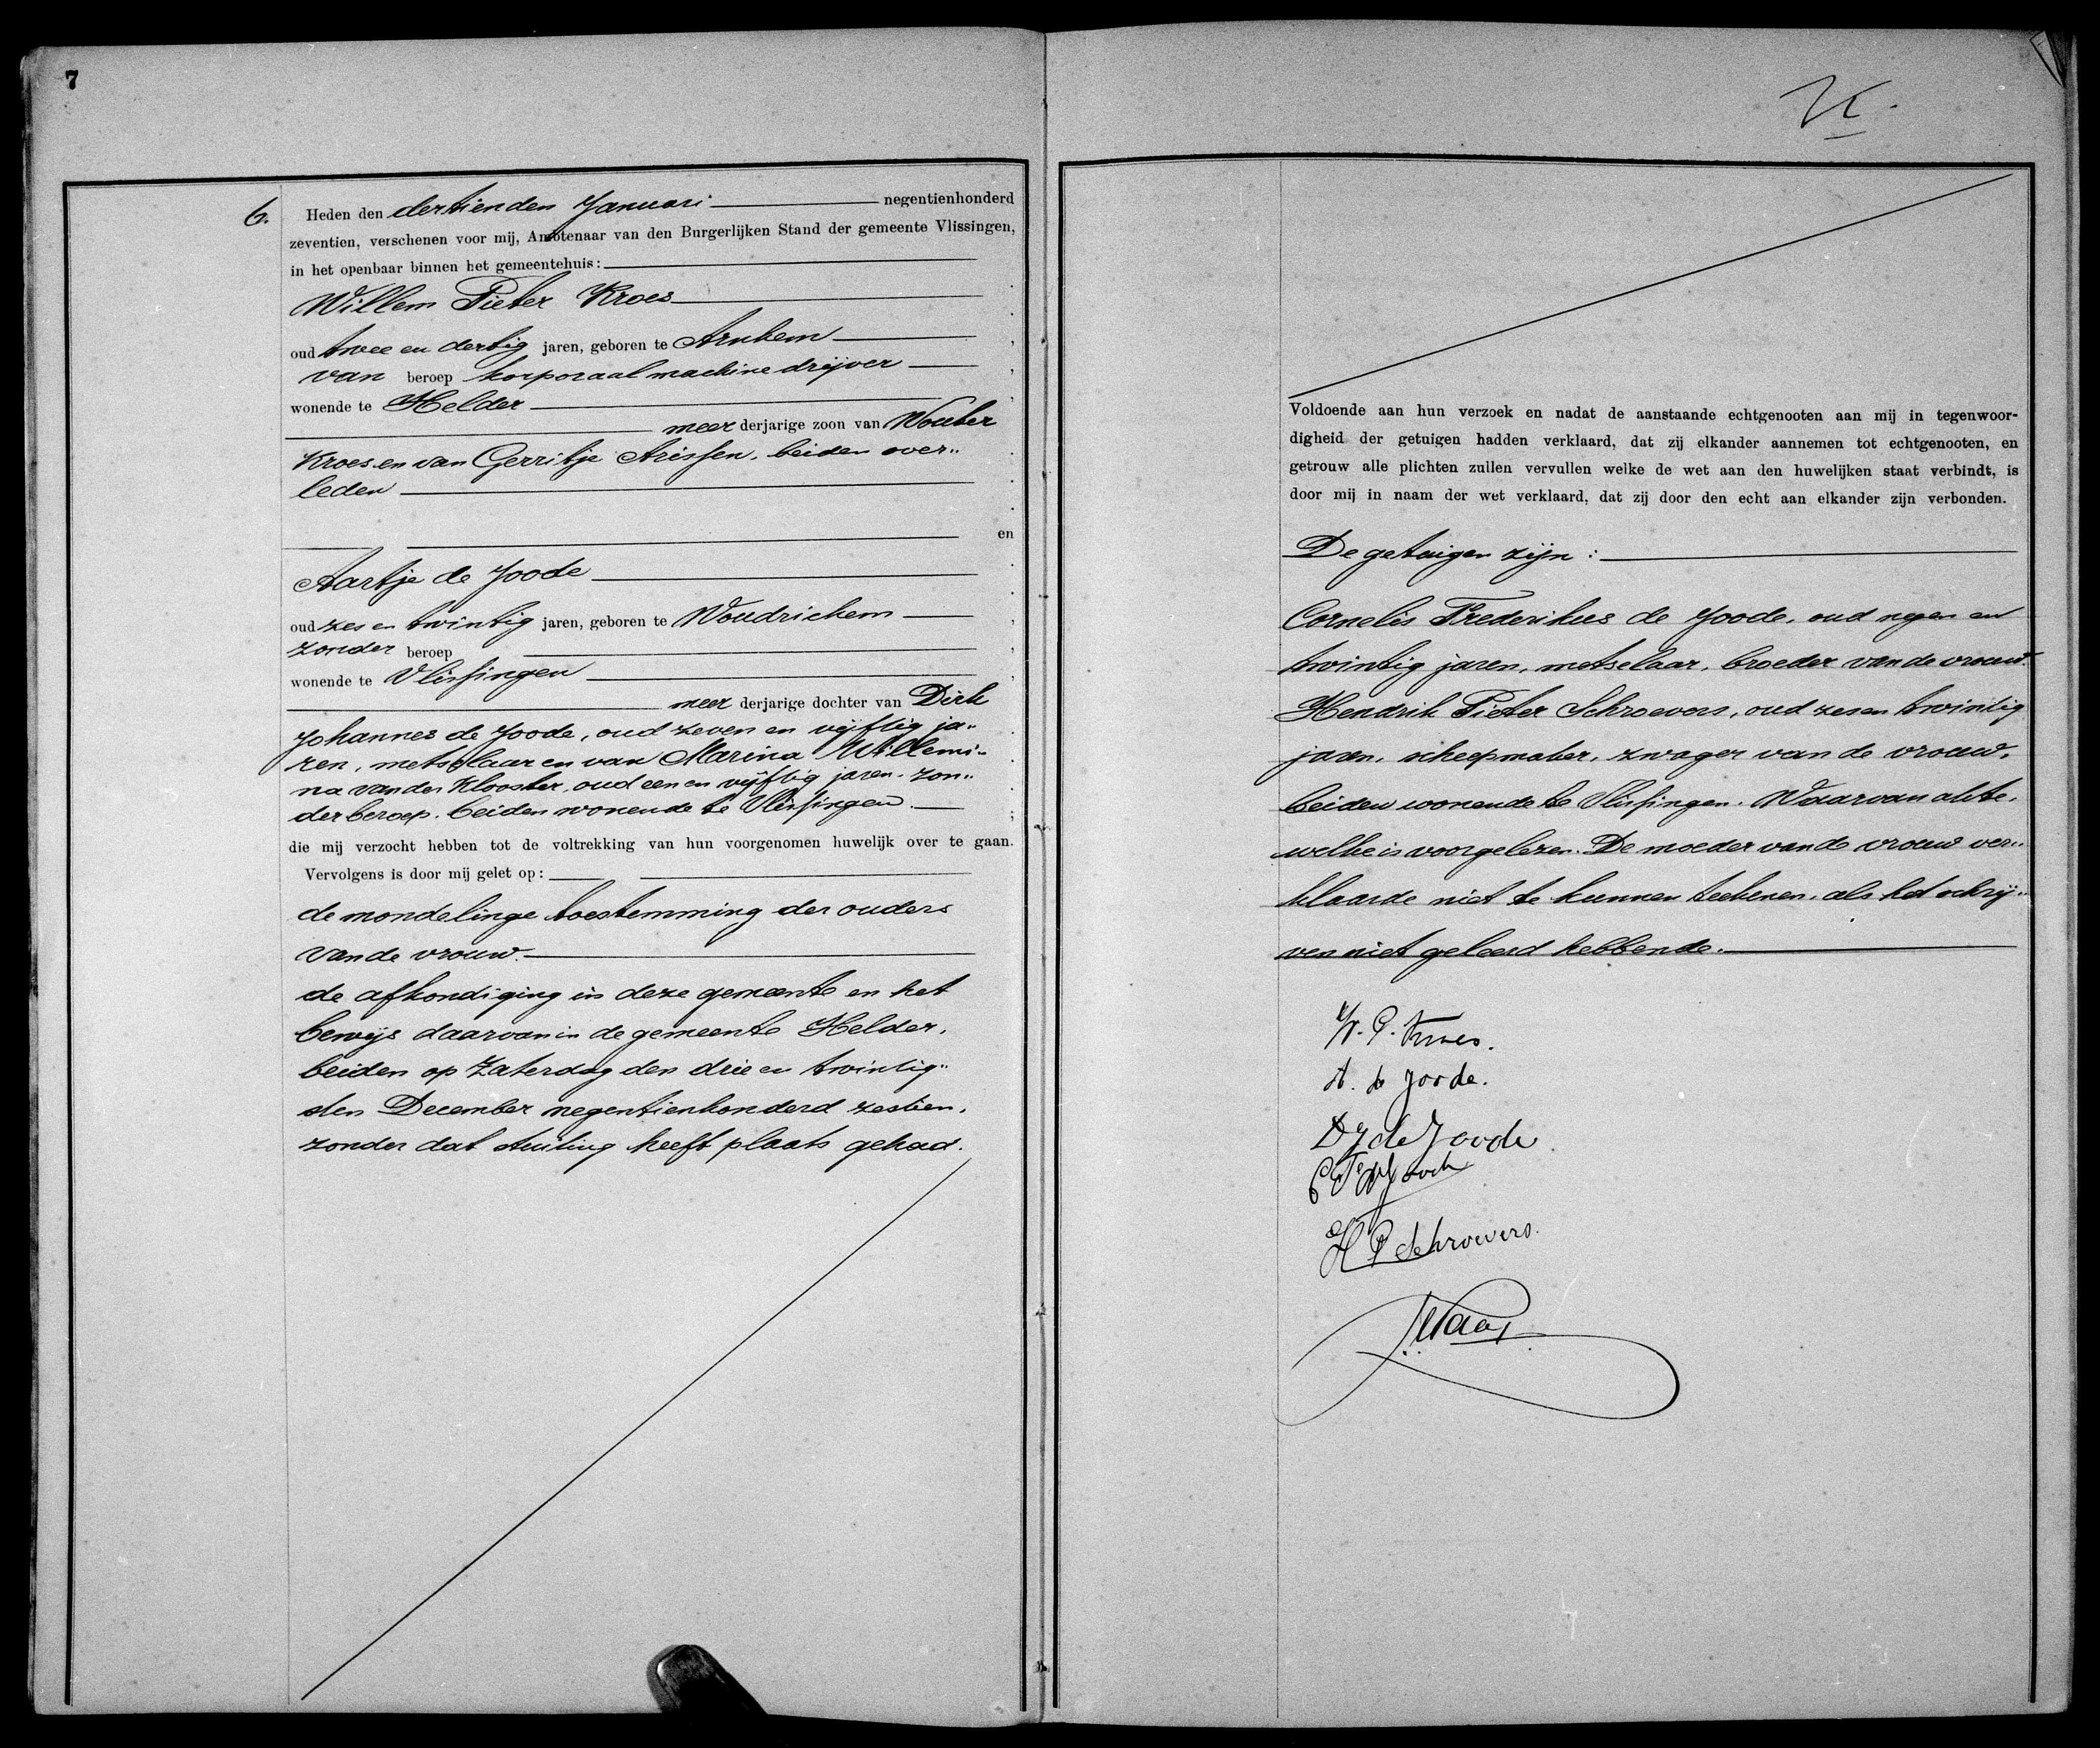 7
6.
Heden den dertienden Januari negentienhonderd
zeventien, verschenen voor mij, Ambtenaar van den Burgerlijken Stand der gemeente Vlissingen,
in het openbaar binnen het gemeentehuis:
Willem Pieter Kroes
oud twee en dertig jaren, geboren te Arnhem,
van beroep korporaal machinedrijver,
wonende te Helder,
meerderjarige zoon van Wouter
Kroes en van Gerritje Arissen, beiden over„
leden
en
Aartje de Joode
oud zes en twintig jaren, geboren te Woudrichem,
zonder beroep,
wonende te Vlissingen,
meerderjarige dochter van Dirk
Johannes de Joode, oud zeven en vijftig ja„
ren, metselaar en van Marina Willemi„
na van der Klooster, oud een en vijftig jaren, zon„
der beroep, beiden wonende te Vlissingen.;
die mij verzocht hebben tot de voltrekking van hun voorgenomen huwelijk over te gaan.
Vervolgens is door mij gelet op:
de mondelinge toestemming der ouders
van de vrouw.
de afkondiging in deze gemeente en het
bewijs daarvan in de gemeente Helder,
beiden op Zaterdag den drie en twintig„
sten December negentienhonderd zestien,
zonder dat stuiting heeft plaats gehad.
Voldoende aan hun verzoek en nadat de aanstaande echtgenooten aan mij in tegenwoor-
digheid der getuigen hadden verklaard, dat zij elkander aannemen tot echtgenooten, en
getrouw alle plichten zullen vervullen welke de wet aan den huwelijken staat verbindt, is
door mij in naam der wet verklaard, dat zij door den echt aan elkander zijn verbonden.
De getuigen zijn:
Cornelis Frederikus de Joode, oud negen en
twintig jaren, metselaar, broeder van de vrouw.
Hendrik Pieter Schroevers, oud zes en twintig
jaren, scheepmaker, zwager van de vrouw,
beiden wonende te Vlissingen. Waarvan akte,
welke is voorgelezen. De moeder van de vrouw ver„
klaarde niet te kunnen teekenen, als het schrij„
ven niet geleerd hebbende.
W. P. Kroes.
A. de Joode.
D J de Joode
C F de Joode
H P Schroevers.